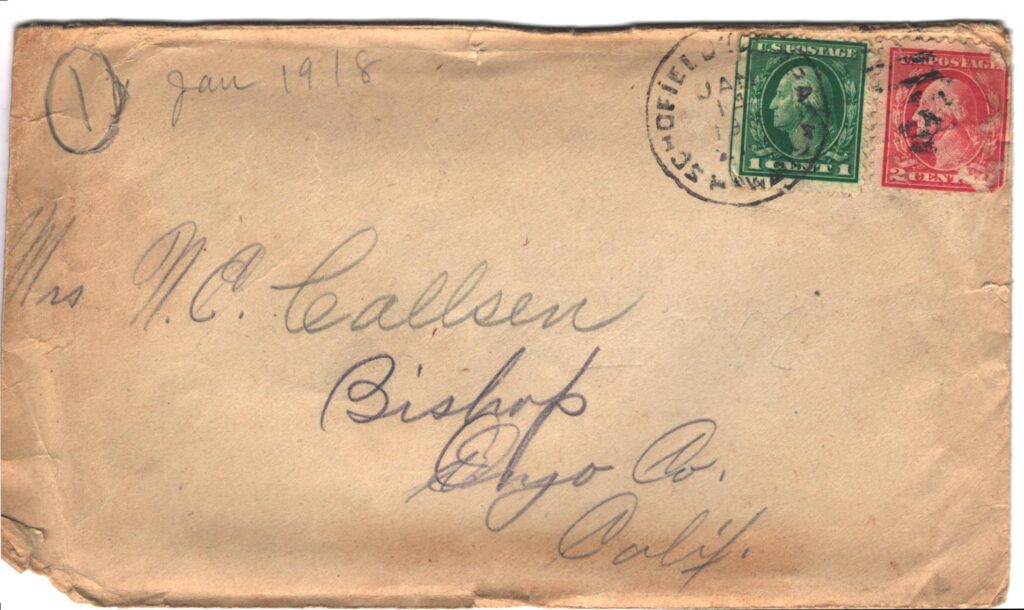 1 Jan 1918
SCHOFIELD
JAN
HAWAII
U.S. POSTAGE
1 CENT 1
U.S. POSTAGE
2 CENTS
Mrs N.C. Callsen
Bishop
Inyo Co.
Calif.